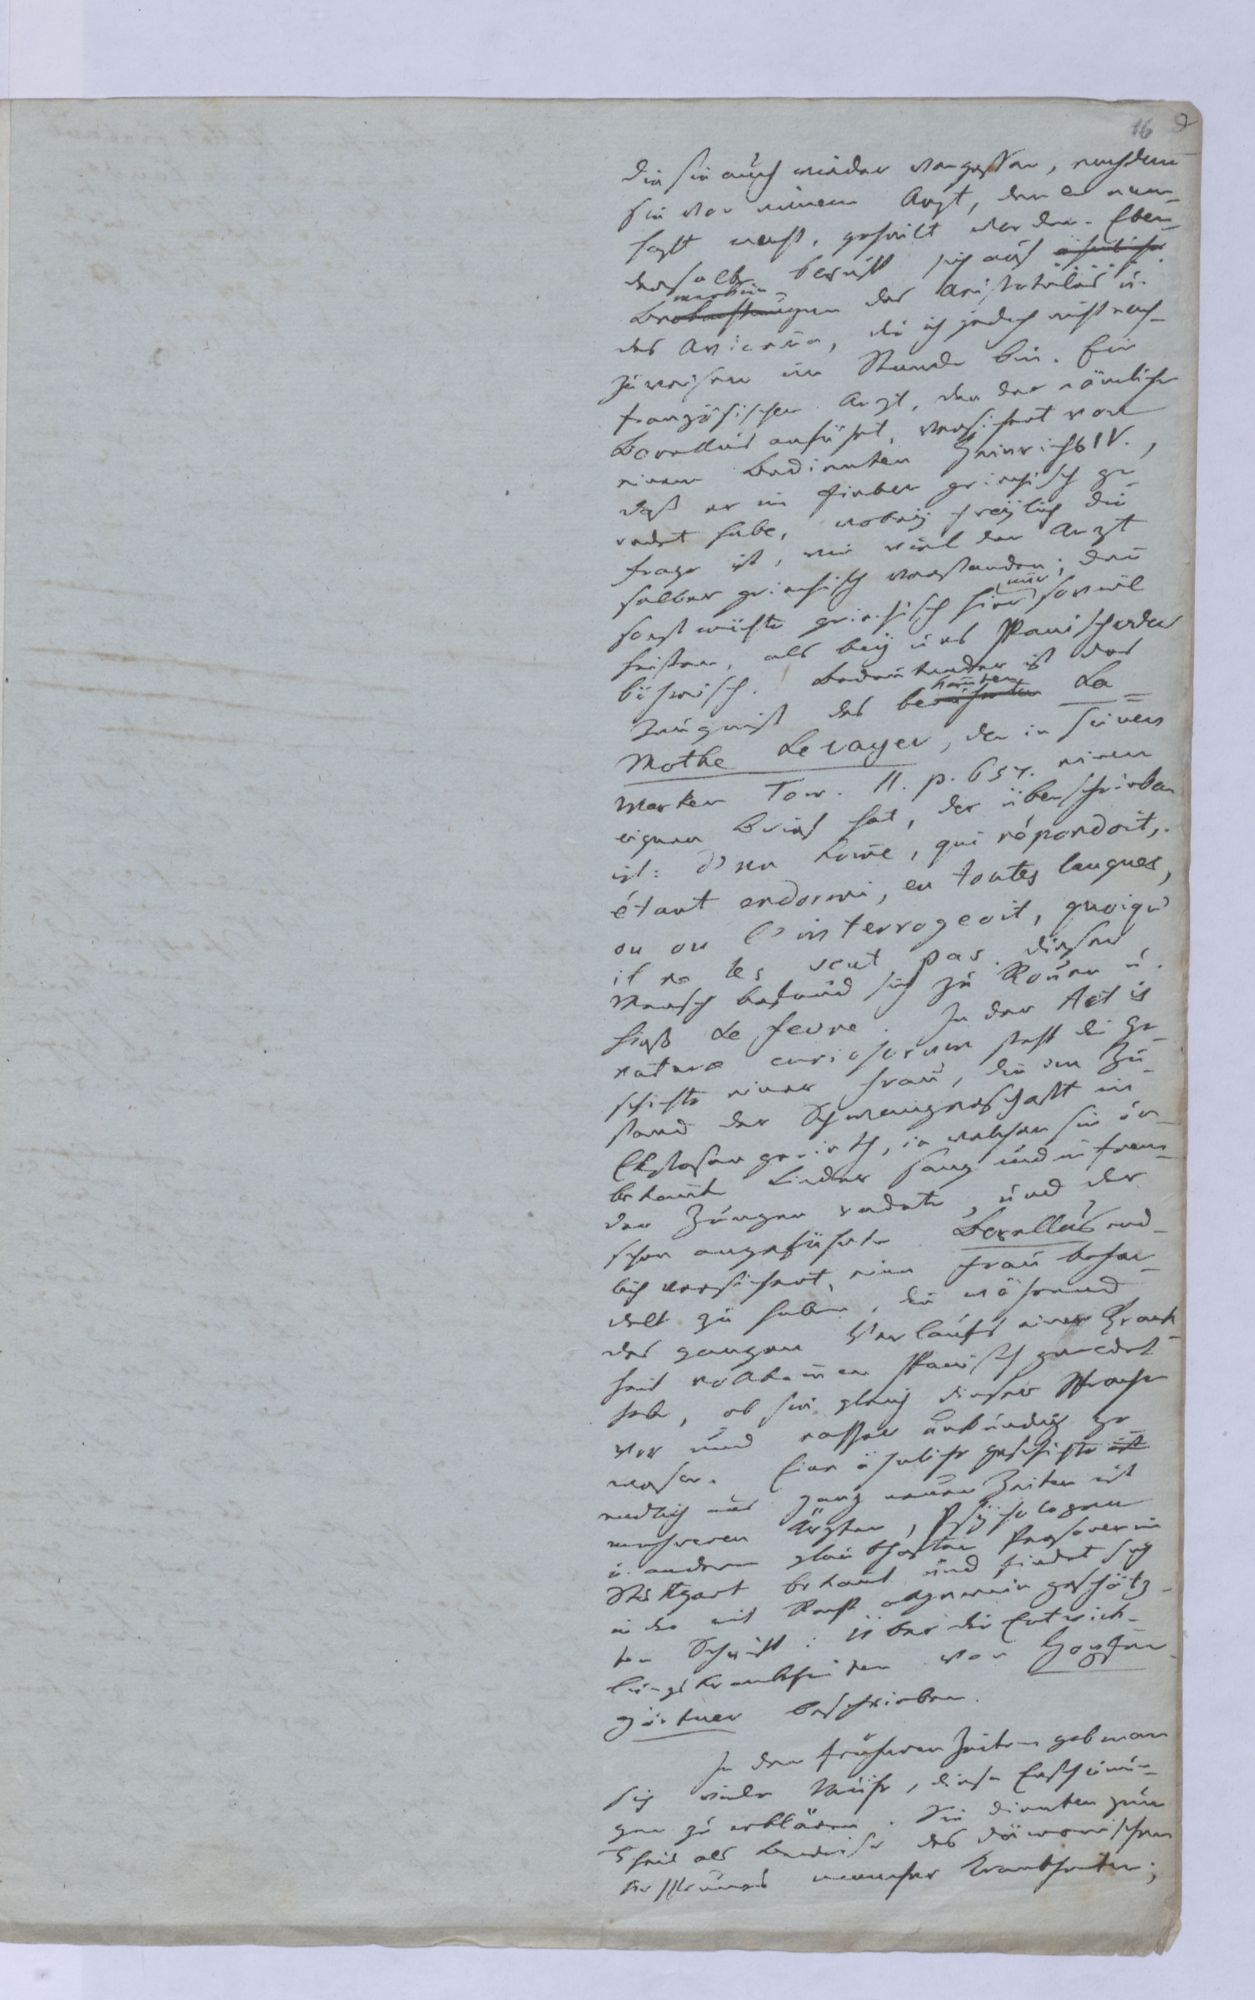 16
die sie auch wieder vergessen, nachdem
sie von einem Arzt, den er nam-
haft macht, geheilt worden. Eben-
derselbe beruft sich auf ähnliche
Beobachtungen des Aristoteles u.
des Avicenna, die ich jedoch nicht nach-
zuweisen im Stande bin. Ein
französischer Arzt, den der nämliche
Borellus anführt, versichert von
einem Bedienten Heinrichs IV.,
daß er im Fieber griechisch ge-
redet habe, wobey freylich die
Frage ist, wie viel der Arzt
selber griechisch verstanden; denn
sonst möchte griechisch hier nur soviel
heißen, als bey uns Spanisch oder
böhmisch. Bedeutender ist das
Zeugniß des bekannten La
Mothe Levayer, der in seinen
Werken Tom. II. p. 657. einen
eignen Brief hat, der überschrieben
ist: d'un home, qui répondoit,
étant endormi, en toutes langues,
ou on l'interrogeoit, quoiqu'
il ne les scut pas. Dieser
Mensch befand sich zu Rouen u.
hieß Le fevre. In den Actis
naturae curiosorum steht die Ge-
schichte einer Frau, die im Zu-
stand der Schwangerschaft in
Ekstasen gerieth, in welchen sie un-
bekannte Lieder sang und in frem-
den Zungen redete, und der
schon angeführte Borellus end-
lich versichert, eine Frau behan-
delt zu haben, die während
des ganzen Verlaufs einer Krank-
heit vollkommen Spanisch geredet
habe, ob sie gleich dieser Sprache
vor und nachher unkundig ge-
wesen. Eine ähnliche Geschichte ist
endlich aus ganz neuen Zeiten ist
mehreren Ärzten, Psychologen
u. andern glaubhaften Personen in
Stuttgart bekannt und findet sich
in der mit Recht allgemein geschätz-
ten Schrift: über die Entwick-
lungskrankheiten von Hopfen-
gärtner beschrieben.
In den früheren Zeiten gab man
sich viele Mühe, diese Erscheinun-
gen zu erklären. Sie dienten zum
Theil als Beweise des dämonischen
Ursprungs mancher Krankheiten;